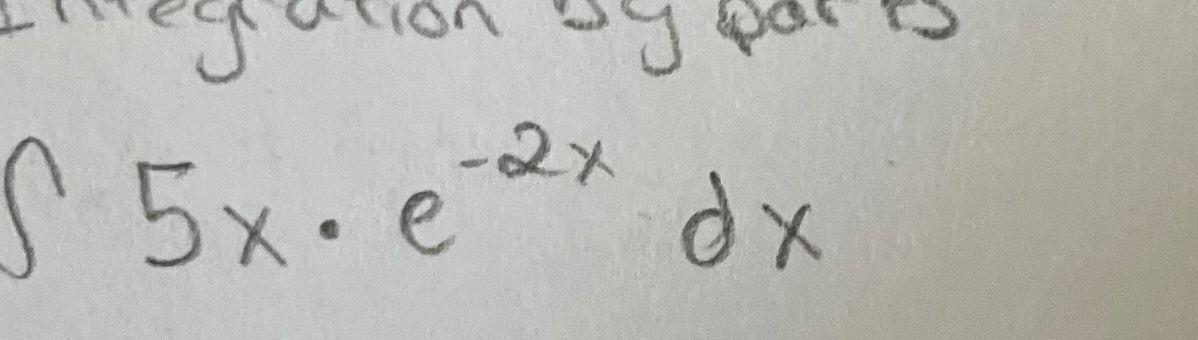 Integration by parts
∫ 5x · e^{-2x} dx